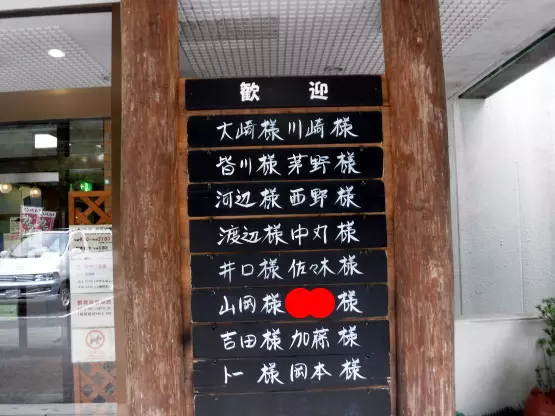 歓迎
大崎様 川崎様
皆川様 茅野様
河辺様 西野様
渡辺様 中丸様
井口様 佐々木様
山岡様 様
吉田様 加藤様
トー様 岡本様